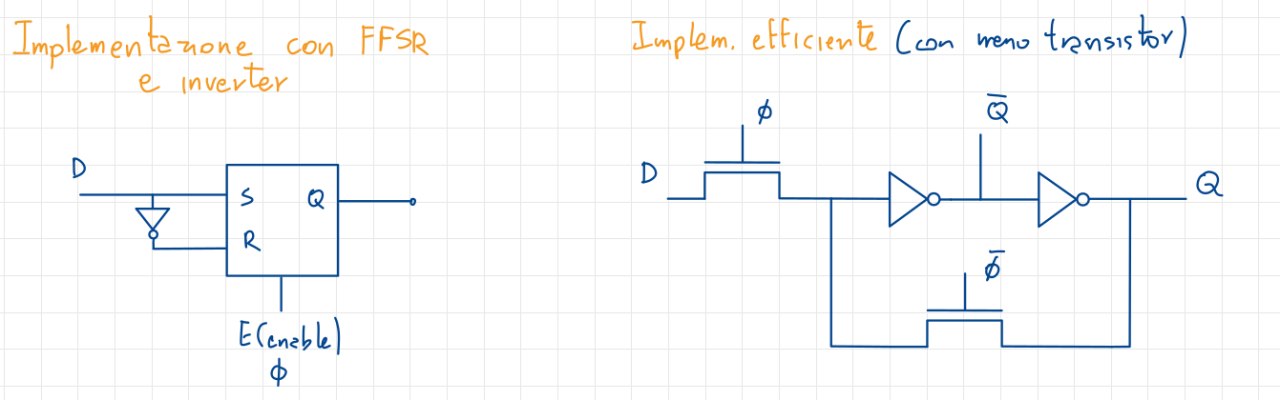 Implementazione con FFSR
e inverter
D
S
Q
R
E(enable)
ϕ
Implem. efficiente (con meno transistor)
ϕ
Q̅
D
Q
ϕ̅